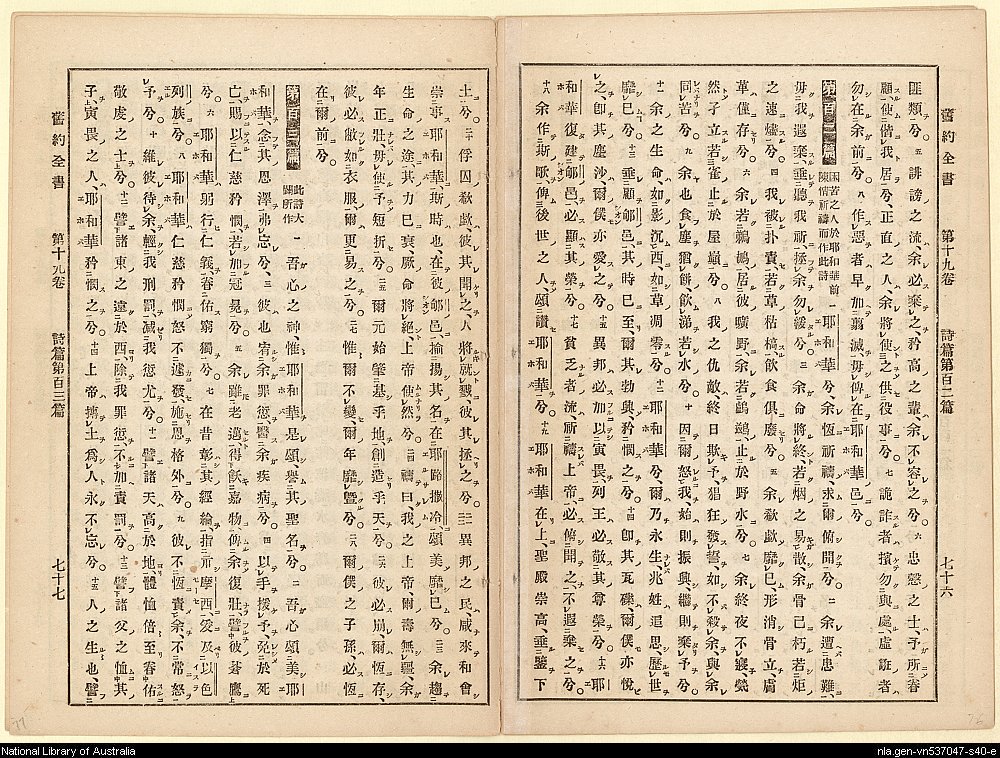 舊約全書 第十九卷 詩篇第百二篇 七十六
匪類兮。五誹謗之流、余必棄之、矜高之輩、余不容之兮。六忠慤之士、予所眷
顧、使偕我居兮、正直之人、余將使之供役事兮。七詭詐者擯勿與處、虛誑者
勿在余前兮。八作惡者早加翦滅、毋俾在耶和華邑兮。
第百二篇 困苦之人於耶和華前陳情祈禱而作此詩 一耶和華兮、余恆祈禱、求爾俯聞兮。二余遭患難、
毋我遐棄、垂聽我祈、拯余勿緩兮。三余命將終、若烟之易散、余骨已朽、若炬
之速燼兮。四我被扑責、若草枯槁、飲食俱廢兮。五余欷歔靡已、形消骨立、膚
革僅存兮。六余若鵜鶘、居彼曠野、余若鸕鷀、止於野水兮。七余終夜不寢、煢
然孑立、若雀止於屋巔兮。八我之仇敵、終日欺予、猖狂發誓、如不殺余、與余
同苦兮。九余也食塵猶餅、飲涕若水兮。十因爾怒我、始則振興、繼則棄予兮。
十一余之生命、如影沉西、如草凋零兮。十二耶和華兮、爾乃永生、兆姓追思、歷世
靡已兮。十三垂顯郇邑、其時已至、爾其勃興、矜憫之兮。十四卽其瓦礫、爾僕亦悅
之、卽其塵沙、爾僕亦愛之兮。十五異邦必加以寅畏、列王必敬其尊榮兮。十六耶
和華復建郇邑、必顯其榮兮。十七貧乏者流、祈禱上帝、必俯聞之、不遐棄之兮。
十八余作斯歌、俾後世之人、頌讃耶和華兮。十九耶和華在上、聖殿崇高、垂鑒下
土兮。二十俘囚欷歔、彼其聞之、人將就戮、彼其拯之兮。異邦之民、咸來和會、
崇事耶和華、斯時也、在彼郇邑、揄揚其名、在耶路撒冷、頌美靡已兮。余趨
生命之途、其力已衰、厥命將絕、上帝使然兮。禱曰、我之上帝、爾壽無疆、余
年正壯、毋使予短折兮。爾元始肇基乎地、創造乎天兮。彼必崩、爾恆存、
彼必敝如衣服、爾更易之兮。惟爾不變、爾年靡曁兮。爾僕之子孫、必恆
在爾前兮。
第百三篇 此詩大闢所作 一吾心之神、惟耶和華是頌、譽其聖名兮。二吾心頌美耶
和華、念其恩澤弗忘兮。三彼也宥余罪愆、醫余疾病兮。四以手援予、免於死
亡、賜以仁慈矜憫、若加冠冕兮。五余雖老邁、得飫嘉物、俾余復壯、譬彼蒼鷹
兮。六耶和華躬行仁義、眷佑窮獨兮。七在昔彰其經綸、指示摩西、爰及以色
列族兮。八耶和華仁慈矜憫、怒不遽發、施恩格外兮。九彼不恆責余、不常怒
予兮。十維彼待余、輕我刑罰、減我愆尤兮。十一譬諸天高於地、體恤倍至、眷佑
敬虔之士兮。十二譬諸東之遠於西、除我罪愆、不加責罰兮。十三譬諸父之恤其
子、寅畏之人、耶和華矜憫之兮。十四上帝摶土爲人、永不忘兮。十五人之生也、譬
舊約全書 第十九卷 詩篇第百三篇 七十七
77
76
National Library of Australia
nla.gen-vn537047-s40-e